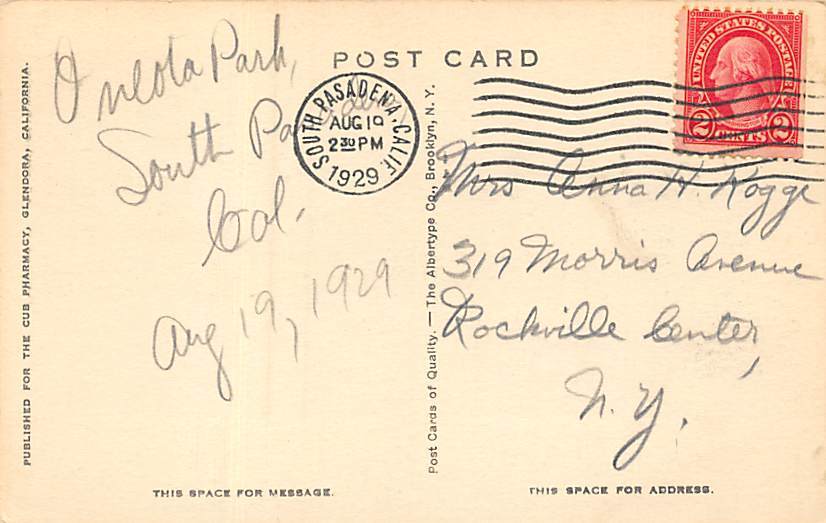 POST CARD
Oneota Park,
South Pasadena
Cal.
Aug 19, 1929
SOUTH PASADENA, CALIF.
AUG 19
2 30 PM
1929
UNITED STATES POSTAGE
2 CENTS 2
Mrs Anna H. Kogge
319 Morris Avenue
Rockville Center,
N.Y.
PUBLISHED FOR THE CUB PHARMACY, GLENDORA, CALIFORNIA.
Post Cards of Quality. — The Albertype Co., Brooklyn, N. Y.
THIS SPACE FOR MESSAGE.
THIS SPACE FOR ADDRESS.